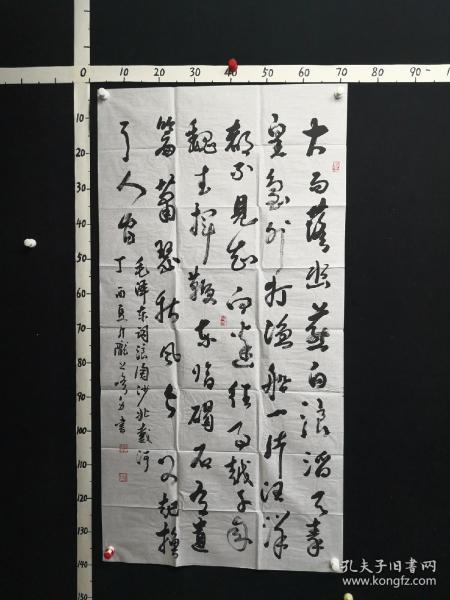 0 10 20 30 40 50 60 70 80 90
10
20
30
40
50
60
70
80
90
100
110
120
130
140
150
大雨落幽燕白浪滔天秦
皇岛外打渔船一片汪洋
都不見知向谁边往事越千年
魏武挥鞭东临碣石有遗
篇萧瑟秋风今又是换
了人间
毛泽东词浪淘沙北戴河
丁酉夏月陇上
书
孔夫子旧书网
www.kongfz.com